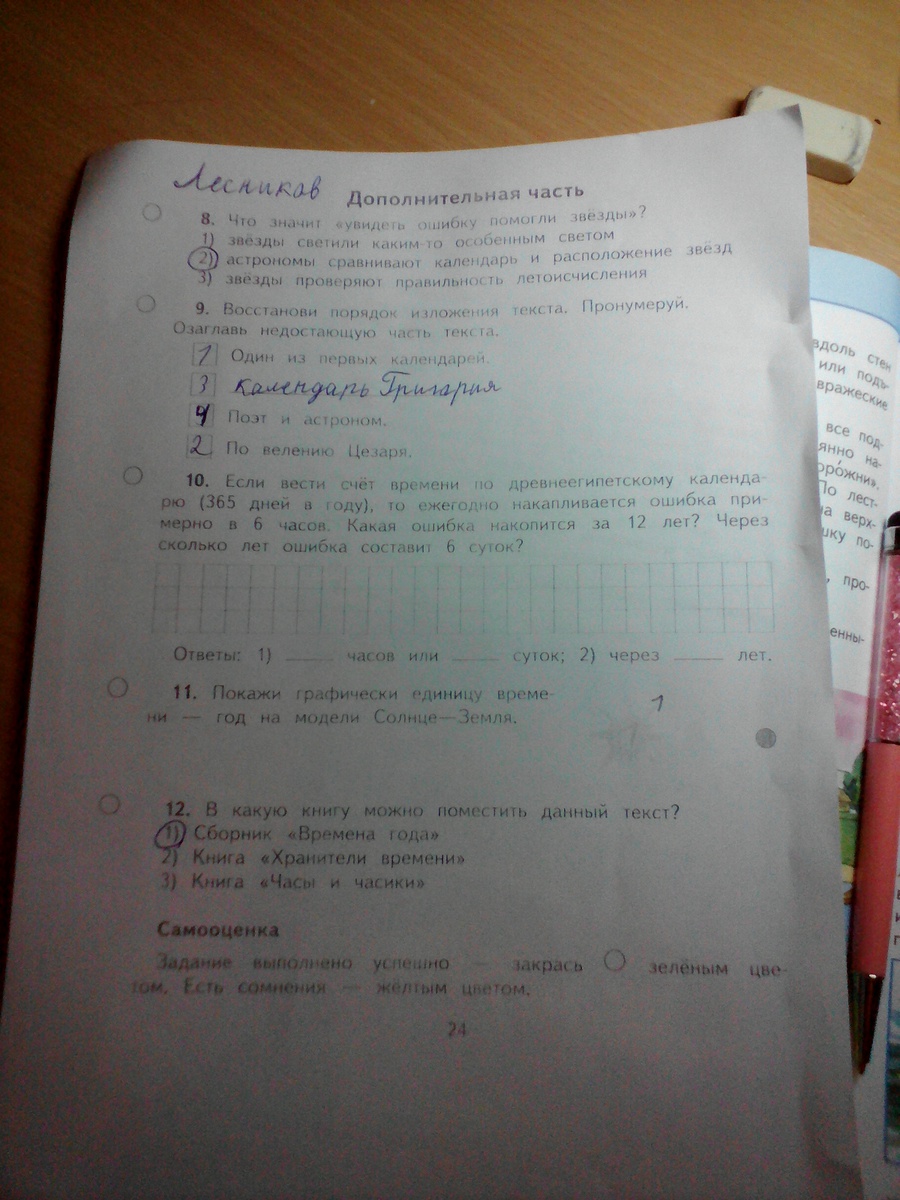 Лесников Дополнительная часть
8. Что значит «увидеть ошибку помогли звёзды»?
1) звёзды светили каким-то особенным светом
2) астрономы сравнивают календарь и расположение звёзд
3) звёзды проверяют правильность летоисчисления
9. Восстанови порядок изложения текста. Пронумеруй.
Озаглавь недостающую часть текста.
1 Один из первых календарей.
3 Календарь Григария
4 Поэт и астроном.
2 По велению Цезаря.
10. Если вести счёт времени по древнеегипетскому календа-
рю (365 дней в году), то ежегодно накапливается ошибка при-
мерно в 6 часов. Какая ошибка накопится за 12 лет? Через
сколько лет ошибка составит 6 суток?
Ответы: 1) ____ часов или ____ суток; 2) через ____ лет.
11. Покажи графически единицу време-
ни — год на модели Солнце—Земля.
1
12. В какую книгу можно поместить данный текст?
1) Сборник «Времена года»
2) Книга «Хранители времени»
3) Книга «Часы и часики»
Самооценка
Задание выполнено успешно — закрась зелёным цве-
том. Есть сомнения — жёлтым цветом.
24
вдоль стен
или подъ-
вражеские
все под-
янно на-
орожни».
По лест-
на верх-
шку по-
, про-
енны-